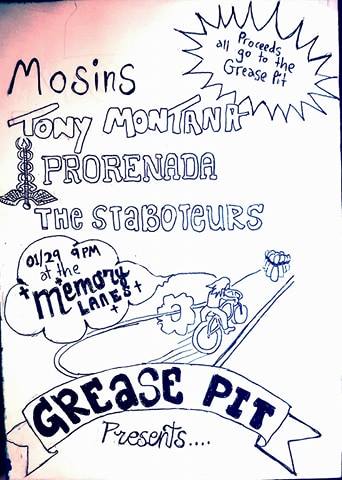 Proceeds
all go to the
Grease Pit
Mosins
TONY MONTANA
PRORENADA
THE STABOTEURS
01/29 9PM
at the
Memory
LANES
GREASE PIT
Presents....